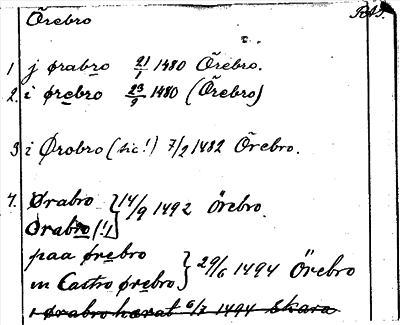 Örebro
RAP.
1 j ørabro 21/1 1480 Örebro.
2. i ørebro 23/9 1480 (Örebro)
3 i Ørobro (sic!) 7/2 1482 Örebro.
4. Ørabro } 14/9 1492 Örebro.
Orabro (!)
paa ørebro } 29/6 1494 Örebro
in Castro ørebro
i ørabro hærat 6/7 1494 Skara